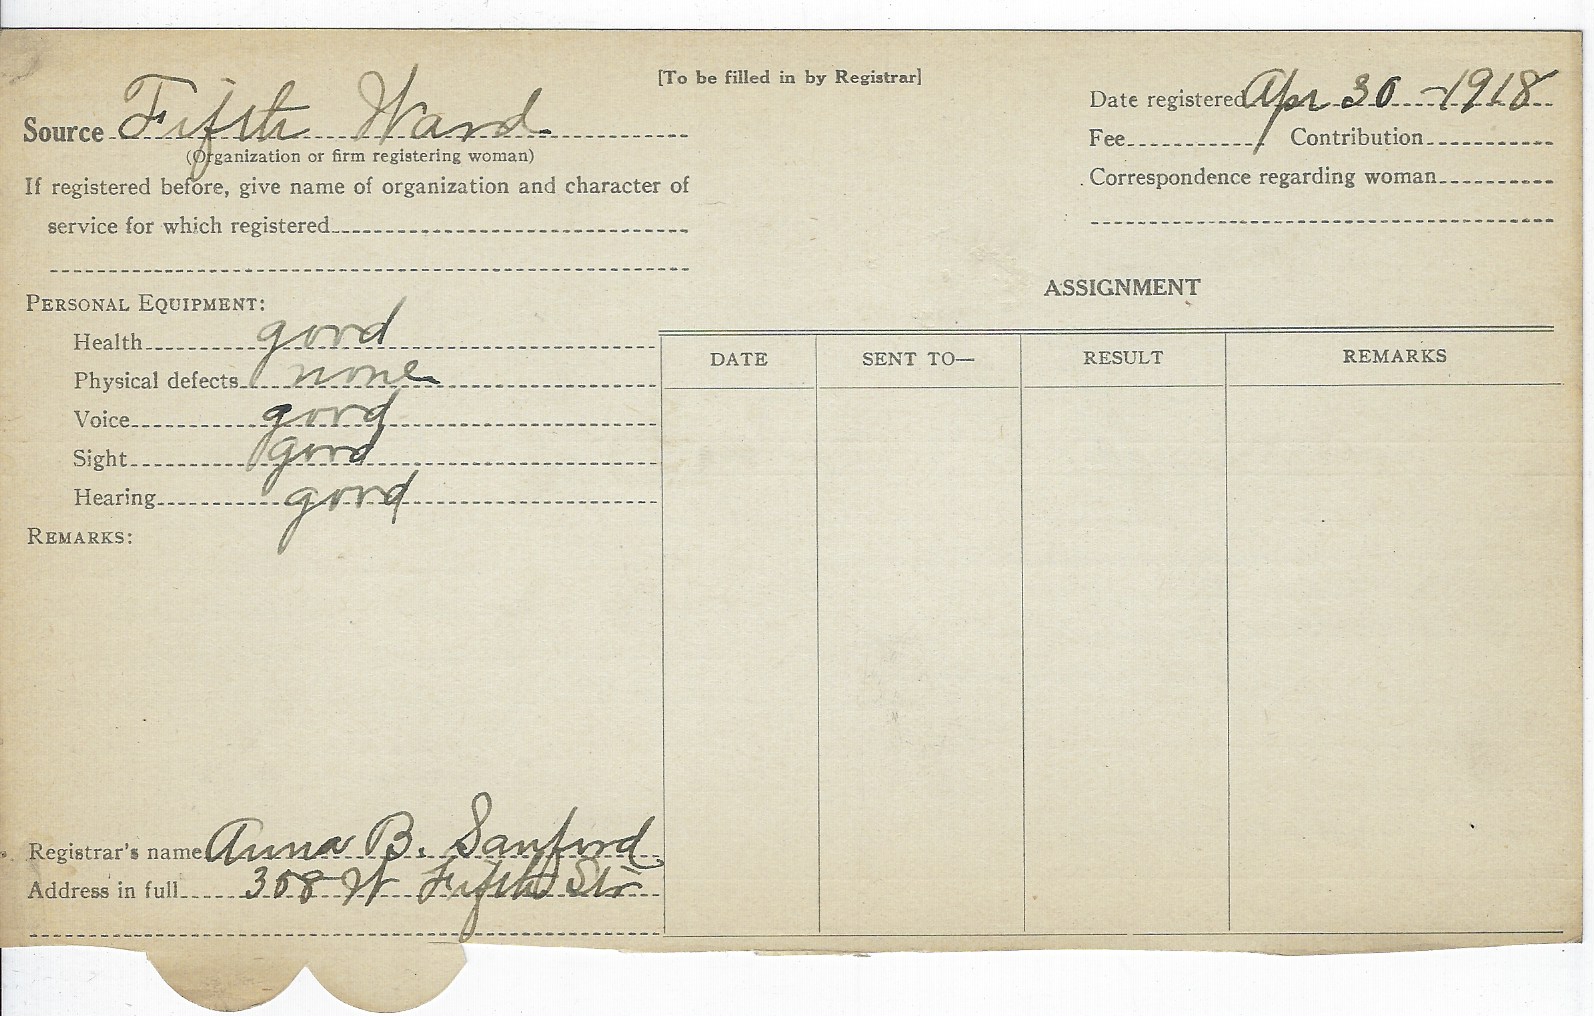 [To be filled in by Registrar]
Source Fifth Ward
(Organization or firm registering woman)
If registered before, give name of organization and character of
service for which registered
Date registered Apr 30 - 1918
Fee Contribution
Correspondence regarding woman
PERSONAL EQUIPMENT:
Health good
Physical defects none
Voice good
Sight good
Hearing good
REMARKS:
ASSIGNMENT
DATE SENT TO— RESULT REMARKS
Registrar's name Anna B. Sanford
Address in full 308 W Fifth Str